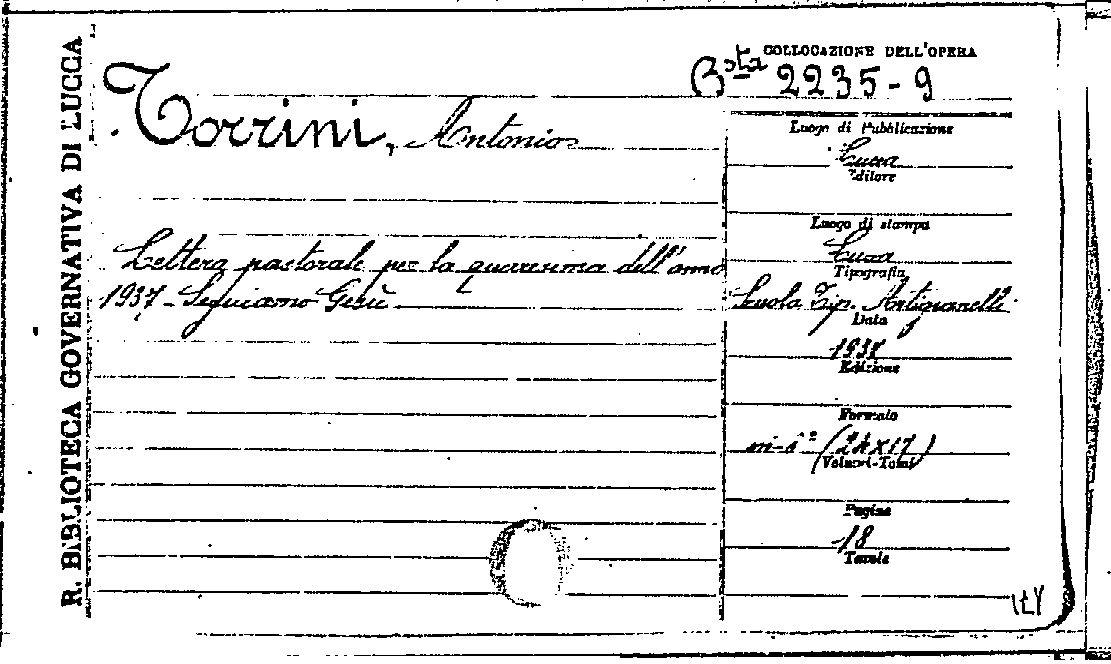 R. BIBLIOTECA GOVERNATIVA DI LUCCA
COLLOCAZIONE DELL'OPERA
Bsta 2235-9
Torrini, Antonio
Luogo di Pubblicazione
Lucca
Editore
Luogo di stampa
Lucca
Tipografia
Lettera pastorale per la quaresima dell'anno
1937 - Seguiamo Gesù.
Scuola Tip. Artigianelli
Data
1937
Edizione
Formato
in-8° (24x17)
Volumi-Tomi
Pagine
18
Tavole